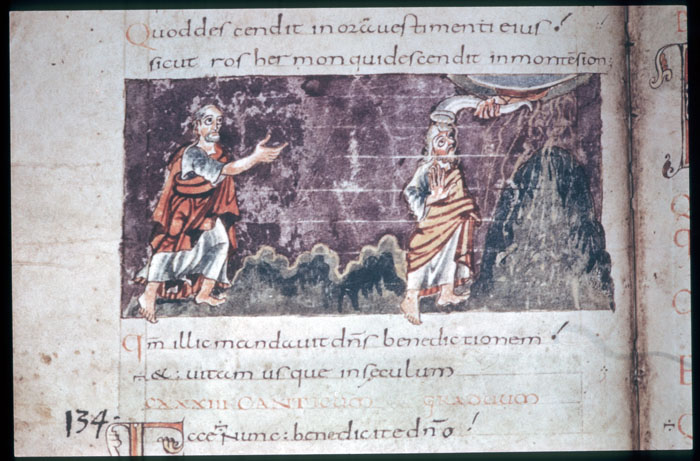 Quod descendit in orā vestimenti eius!
sicut ros hermon qui descendit in montē sion;
Qm̄ illic mandavit dn̄s benedictionem!
&; vitam usque in seculum
CXXXIII CANTICUM GRADUUM
134
Ecce Nunc: benedicite dn̄o!